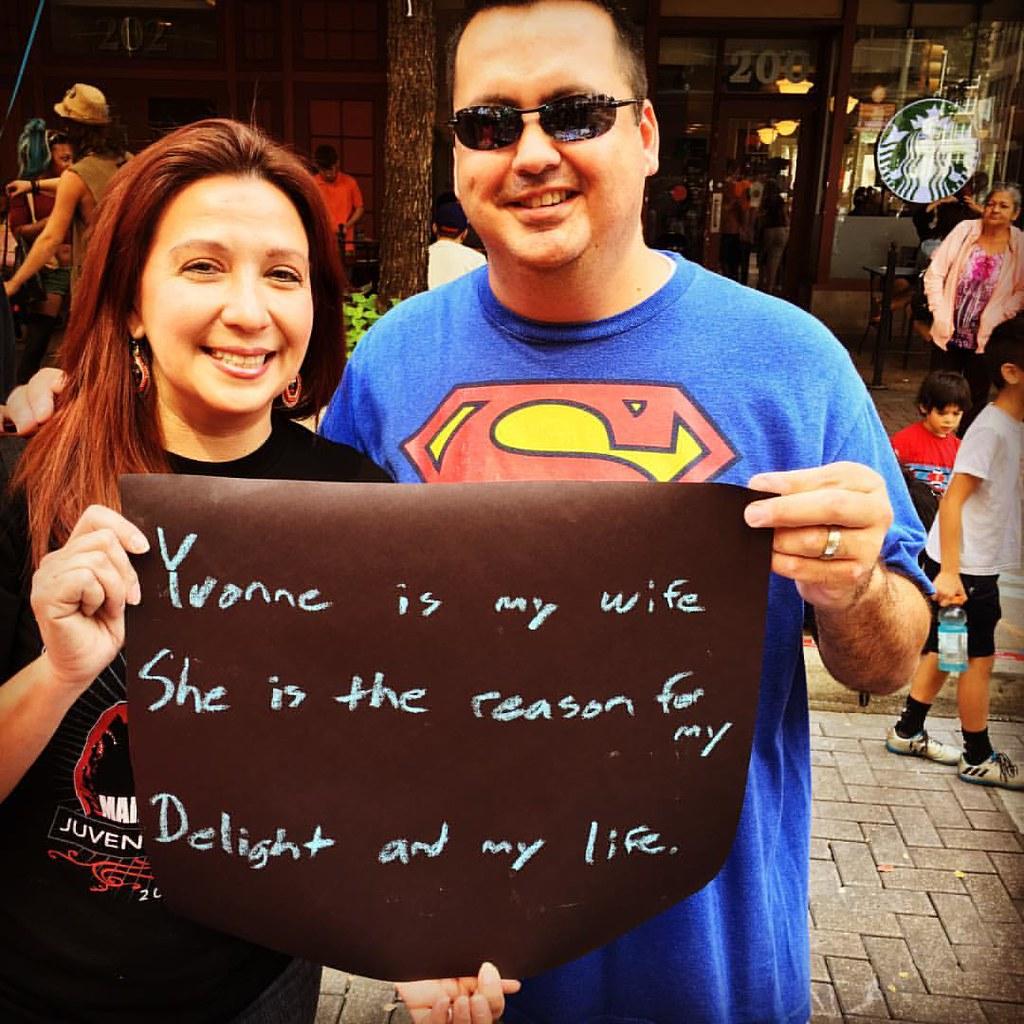 202
200
Yvonne is my wife
She is the reason for
my
Delight and my life.
JUVEN